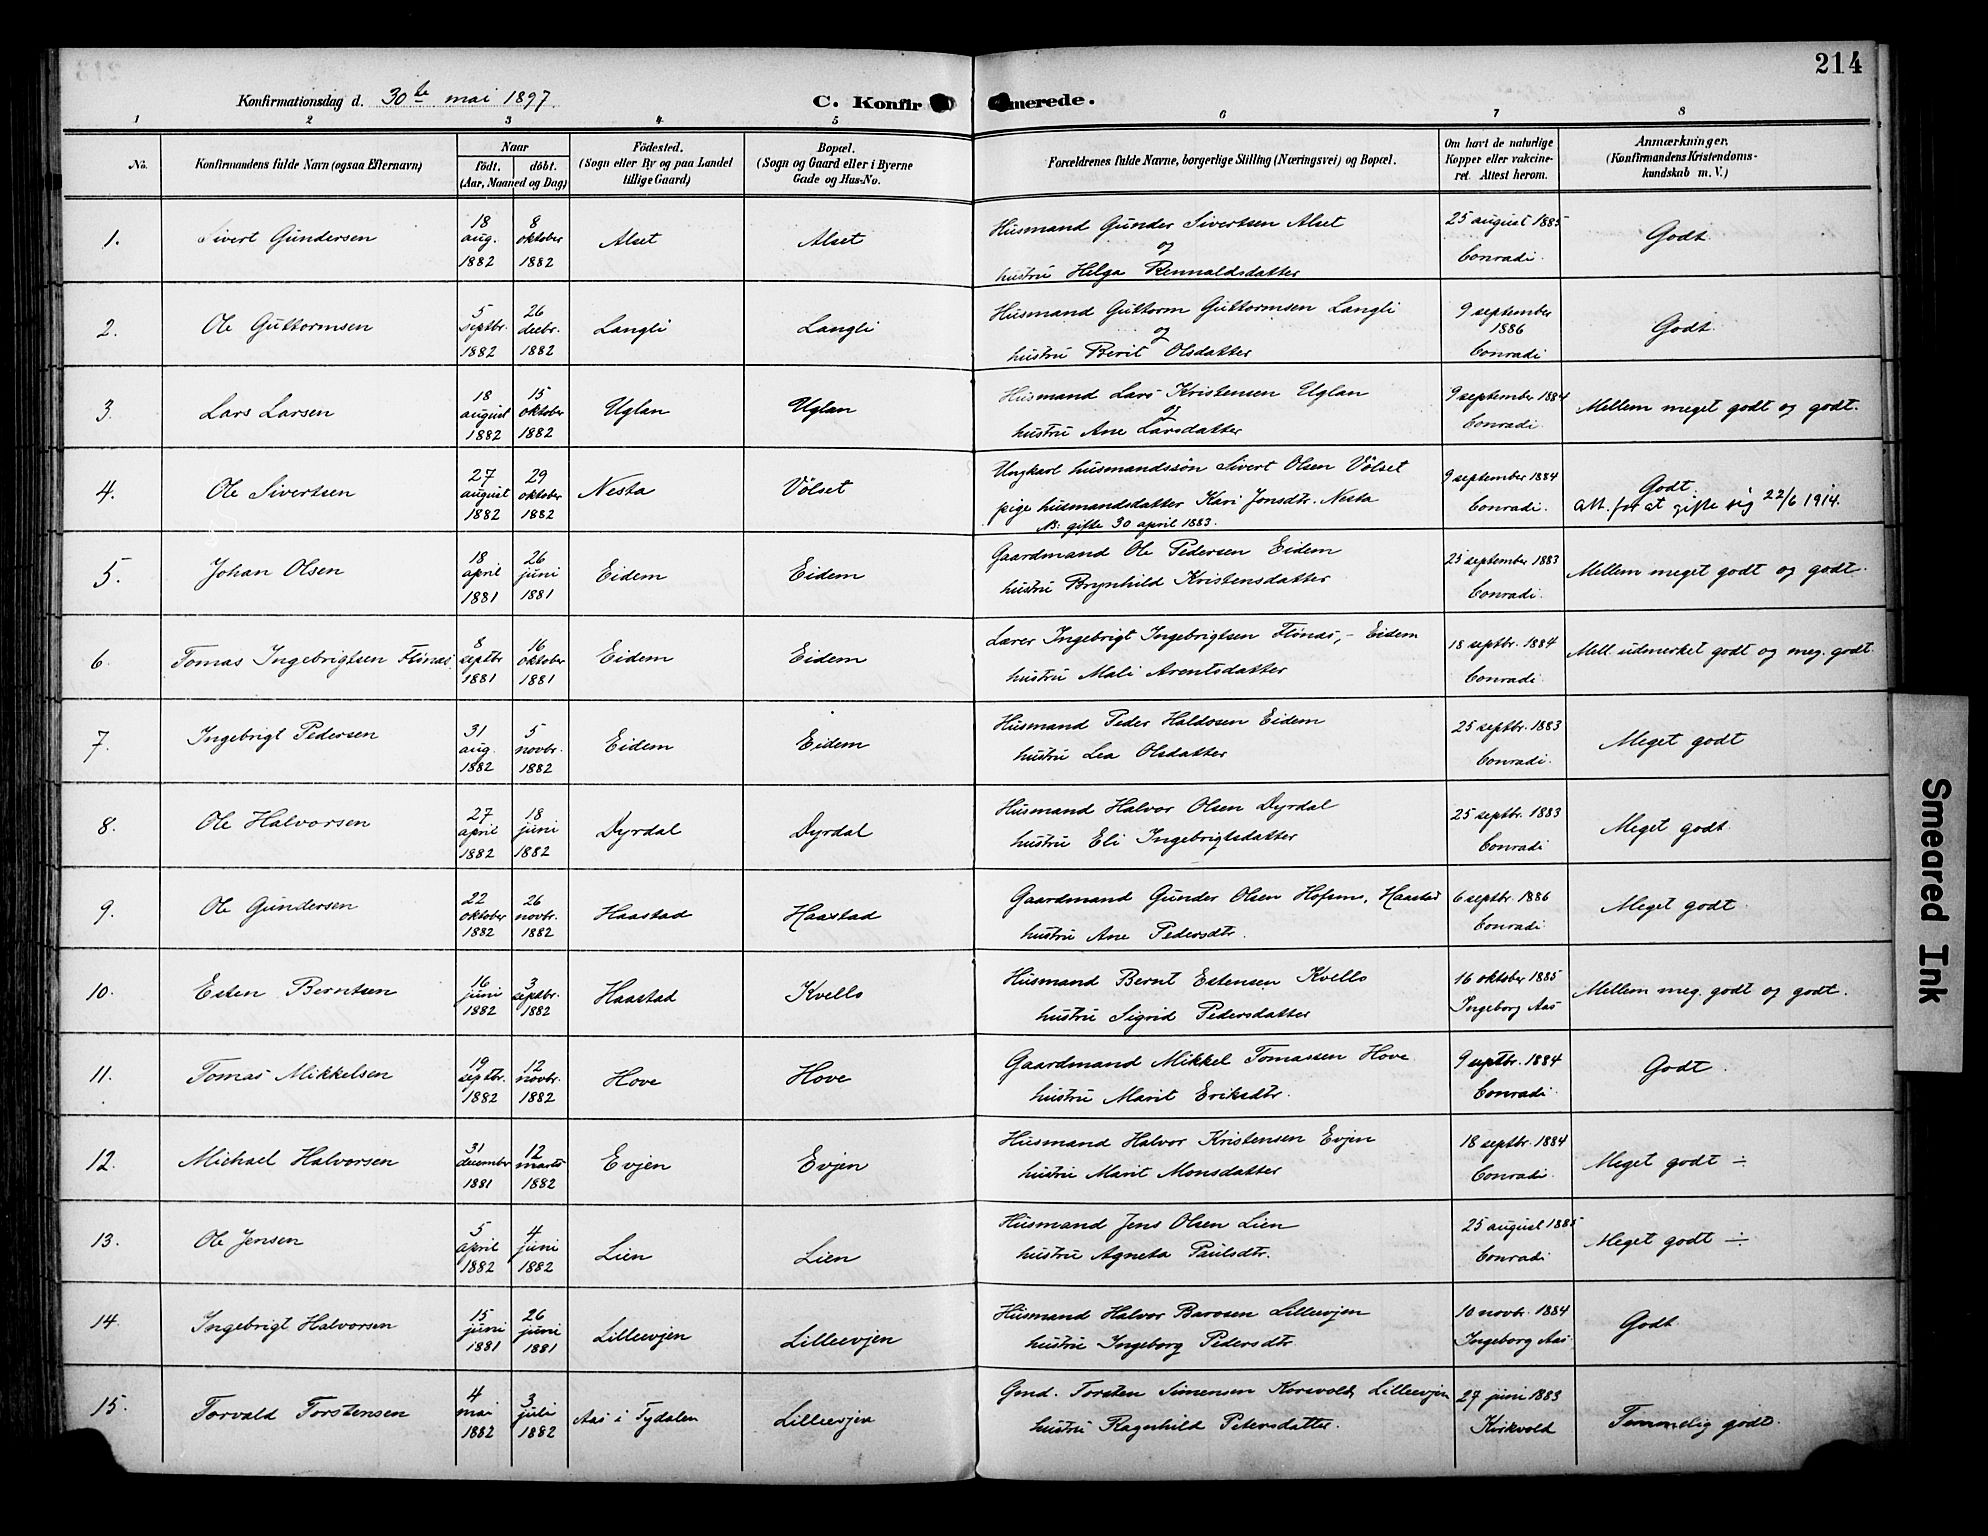 214
Konfirmationsdag d. 30te mai 1897.
C. Konfirmerede.
1 2 3 4 5 6 7 8
No.
Konfirmandens fulde Navn (ogsaa Efternavn)
Naar
födt. döbt.
(Aar, Maaned og Dag)
Födested.
(Sogn eller By og paa Landet
tillige Gaard)
Bopæl.
(Sogn og Gaard eller i Byerne
Gade og Hus-No.
Forældrenes fulde Navne, borgerlige Stilling (Næringsvei) og Bopæl.
Om havt de naturlige
Kopper eller vakcine-
ret. Attest herom.
Anmærkninger.
(Konfirmandens Kristendoms-
kundskab m. V.)
1. Sivert Gundersen 18 aug. 1882 8 oktober 1882 Alset Alset
Husmand Gunder Sivertsen Alset
og
hustru Helga Rennaldsdatter
25 august 1885
Conradi.
Godt.
2. Ole Guttormsen 5 septbr. 1882 26 decbr. 1882 Langli Langli
Husmand Guttorm Guttormsen Langli
og
hustru Berit Olsdatter
9 september
1886
Conradi
Godt.
3. Lars Larsen 18 august 1882 15 oktober 1882 Uglan Uglan
Husmand Lars Kristensen Uglan
og
hustru Ane Larsdatter
9 september 1884
Conradi.
Mellem meget godt og godt.
4. Ole Sivertsen 27 august 1882 29 oktober 1882 Nesta Völset
Ungkarl husmandssön Sivert Olsen Völset
pige husmandsdatter Kari Jonsdtr. Nesta
N: gifte 30 april 1883.
9 september 1884
Conradi.
Godt.
Att. for at gifte sig 22/6 1914.
5. Johan Olsen 18 april 1881 26 juni 1881 Eidem Eidem
Gaardmand Ole Pedersen Eidem
hustru Brynhild Kristensdatter
25 september 1883
Conradi.
Mellem meget godt og godt.
6. Tomas Ingebrigtsen Flönas 8 septbr 1881 16 oktober 1881 Eidem Eidem
Lærer Ingebrigt Ingebrigtsen Flönas, - Eidem
hustru Mali Arentsdatter
18 septbr. 1884
Conradi.
Mell. udmerket godt og meg. godt.
7. Ingebrigt Pedersen 31 aug. 1882 5 novbr. 1882 Eidem Eidem
Husmand Peder Haldosen Eidem
hustru Lea Olsdatter
25 septbr. 1883
Conradi.
Meget godt
8. Ole Halvorsen 27 april 1882 18 juni 1882 Dyrdal Dyrdal
Husmand Halvor Olsen Dyrdal
hustru Eli Ingebrigtsdatter
25 septbr. 1883
Conradi
Meget godt.
9. Ole Gundersen 22 oktober 1882 26 novbr. 1882 Haastad Haastad
Gaardmand Gunder Olsen Hofsmo, Haastad
hustru Ane Pedersdtr.
6 septbr. 1886
Conradi.
Meget godt.
10. Esten Berntsen 16 juni 1882 3 septbr. 1882 Haastad Kvello
Husmand Bernt Estensen Kvello
hustru Sigrid Pedersdatter
16 oktober 1885
Ingeborg Aas
Mellem meg. godt og godt.
11. Tomas Mikkelsen 19 septbr. 1882 12 novbr. 1882 Hove Hove
Gaardmand Mikkel Tomassen Hove
hustru Marit Eriksdtr.
9 septbr. 1884
Conradi.
Godt.
12. Michael Halvorsen 31 december 1881 12 marts 1882 Evjen Evjen
Husmand Halvor Kristensen Evjen
hustru Marit Monsdatter
18 septbr. 1884
Conradi.
Meget godt ÷
13. Ole Jensen 5 april 1882 4 juni 1882 Lien Lien
Husmand Jens Olsen Lien
hustru Agneta Paulsdtr.
25 august 1885
Conradi
Meget godt ÷
14. Ingebrigt Halvorsen 15 juni 1881 26 juni 1881 Lilleevjen Lilleevjen
Husmand Halvor Barosen Lilleevjen
hustru Ingeborg Pedersdtr.
10 novbr. 1884
Ingeborg Aas
Godt
15. Torvald Torstensen 4 mai 1882 3 juli 1882 Aas i Tydalen Lilleevjen
Gmd. Torsten Simensen Korsvold, Lilleevjen
hustru Ragnhild Petersdatter.
27 juni 1883
Kirkvold
Temmelig godt.
Smeared Ink